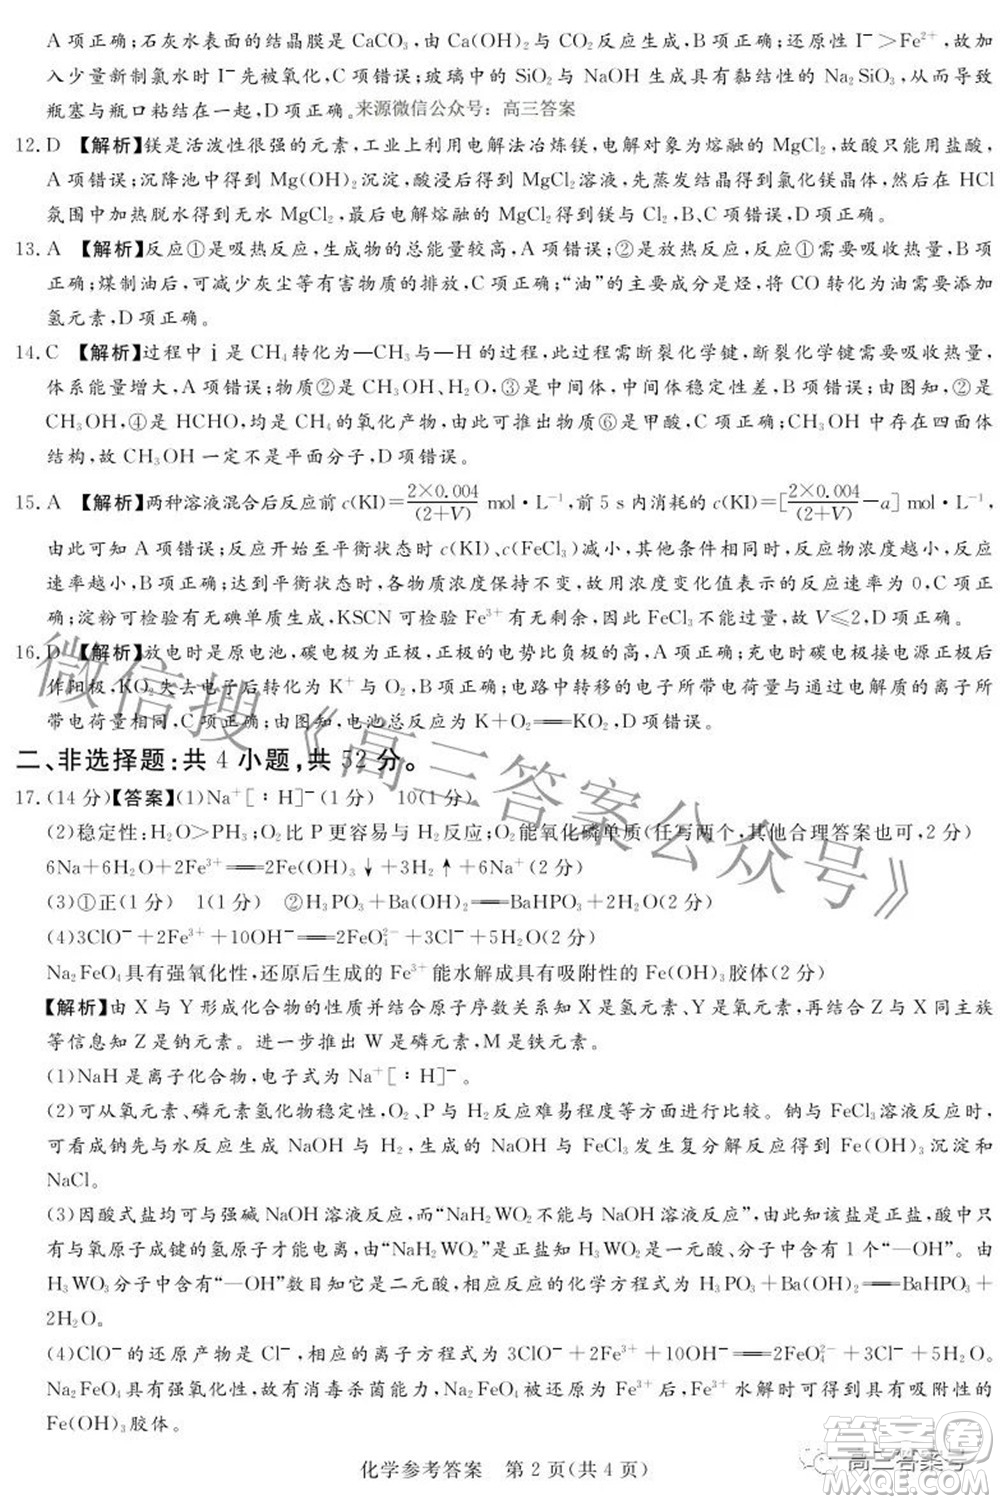 A 项正确;石灰水表面的结晶膜是 CaCO₃,由 Ca(OH)₂ 与 CO₂ 反应生成,B 项正确;还原性 I⁻>Fe²⁺,故加
入少量新制氯水时 I⁻ 先被氧化,C 项错误;玻璃中的 SiO₂ 与 NaOH 生成具有黏结性的 Na₂SiO₃,从而导致
瓶塞与瓶口粘结在一起,D 项正确。 来源微信公众号:高三答案
12.D 【解析】镁是活泼性很强的元素,工业上利用电解法冶炼镁,电解对象为熔融的 MgCl₂,故酸只能用盐酸,
A 项错误;沉降池中得到 Mg(OH)₂ 沉淀,酸浸后得到 MgCl₂ 溶液,先蒸发结晶得到氯化镁晶体,然后在 HCl
氛围中加热脱水得到无水 MgCl₂,最后电解熔融的 MgCl₂ 得到镁与 Cl₂,B、C 项错误,D 项正确。
13.A 【解析】反应①是吸热反应,生成物的总能量较高,A 项错误;②是放热反应,反应①需要吸收热量,B 项
正确;煤制油后,可减少灰尘等有害物质的排放,C 项正确;“油”的主要成分是烃,将 CO 转化为油需要添加
氢元素,D 项正确。
14.C 【解析】过程中 ⅰ 是 CH₄ 转化为—CH₃ 与—H 的过程,此过程需断裂化学键,断裂化学键需要吸收热量,
体系能量增大,A 项错误;物质②是 CH₃OH、H₂O,③是中间体,中间体稳定性差,B 项错误;由图知,②是
CH₃OH,④是 HCHO,均是 CH₄ 的氧化产物,由此可推出物质⑥是甲酸,C 项正确;CH₃OH 中存在四面体
结构,故 CH₃OH 一定不是平面分子,D 项错误。
15.A 【解析】两种溶液混合后反应前 c(KI)=2×0.004/(2+V) mol·L⁻¹,前 5 s 内消耗的 c(KI)=[2×0.004/(2+V)−a] mol·L⁻¹,
由此可知 A 项错误;反应开始至平衡状态时 c(KI)、c(FeCl₃)减小,其他条件相同时,反应物浓度越小,反应
速率越小,B 项正确;达到平衡状态时,各物质浓度保持不变,故用浓度变化值表示的反应速率为 0,C 项正
确;淀粉可检验有无碘单质生成,KSCN 可检验 Fe³⁺ 有无剩余,因此 FeCl₃ 不能过量,故 V≤2,D 项正确。
16.D 【解析】放电时是原电池,碳电极为正极,正极的电势比负极的高,A 项正确;充电时碳电极接电源正极后
作阳极,KO₂ 失去电子后转化为 K⁺ 与 O₂,B 项正确;电路中转移的电子所带电荷量与通过电解质的离子所
带电荷量相同,C 项正确;由图知,电池总反应为 K+O₂══KO₂,D 项错误。
二、非选择题:共 4 小题,共 52 分。
17.(14 分)【答案】(1)Na⁺[∶H]⁻(1 分) 10(1 分)
(2)稳定性:H₂O>PH₃;O₂ 比 P 更容易与 H₂ 反应;O₂ 能氧化磷单质(任写两个,其他合理答案也可,2 分)
6Na+6H₂O+2Fe³⁺══2Fe(OH)₃↓+3H₂↑+6Na⁺(2 分)
(3)①正(1 分) 1(1 分) ②H₃PO₃+Ba(OH)₂══BaHPO₃+2H₂O(2 分)
(4)3ClO⁻+2Fe³⁺+10OH⁻══2FeO₄²⁻+3Cl⁻+5H₂O(2 分)
Na₂FeO₄ 具有强氧化性,还原后生成的 Fe³⁺ 能水解成具有吸附性的 Fe(OH)₃ 胶体(2 分)
【解析】由 X 与 Y 形成化合物的性质并结合原子序数关系知 X 是氢元素、Y 是氧元素,再结合 Z 与 X 同主族
等信息知 Z 是钠元素。进一步推出 W 是磷元素,M 是铁元素。
(1)NaH 是离子化合物,电子式为 Na⁺[∶H]⁻。
(2)可从氧元素、磷元素氢化物稳定性,O₂、P 与 H₂ 反应难易程度等方面进行比较。钠与 FeCl₃ 溶液反应时,
可看成钠先与水反应生成 NaOH 与 H₂,生成的 NaOH 与 FeCl₃ 发生复分解反应得到 Fe(OH)₃ 沉淀和
NaCl。
(3)因酸式盐均可与强碱 NaOH 溶液反应,而“NaH₂WO₂ 不能与 NaOH 溶液反应”,由此知该盐是正盐,酸中只
有与氧原子成键的氢原子才能电离,由“NaH₂WO₂”是正盐知 H₃WO₂ 是一元酸、分子中含有 1 个“—OH”。由
H₃WO₃ 分子中含有“—OH”数目知它是二元酸,相应反应的化学方程式为 H₃PO₃+Ba(OH)₂══BaHPO₃+
2H₂O。
(4)ClO⁻ 的还原产物是 Cl⁻,相应的离子方程式为 3ClO⁻+2Fe³⁺+10OH⁻══2FeO₄²⁻+3Cl⁻+5H₂O。
Na₂FeO₄ 具有强氧化性,故有消毒杀菌能力,Na₂FeO₄ 被还原为 Fe³⁺ 后,Fe³⁺ 水解时得到具有吸附性的
Fe(OH)₃ 胶体。
化学参考答案 第 2 页(共 4 页)
微信搜《高三答案公众号》
答案卷
高三答案号